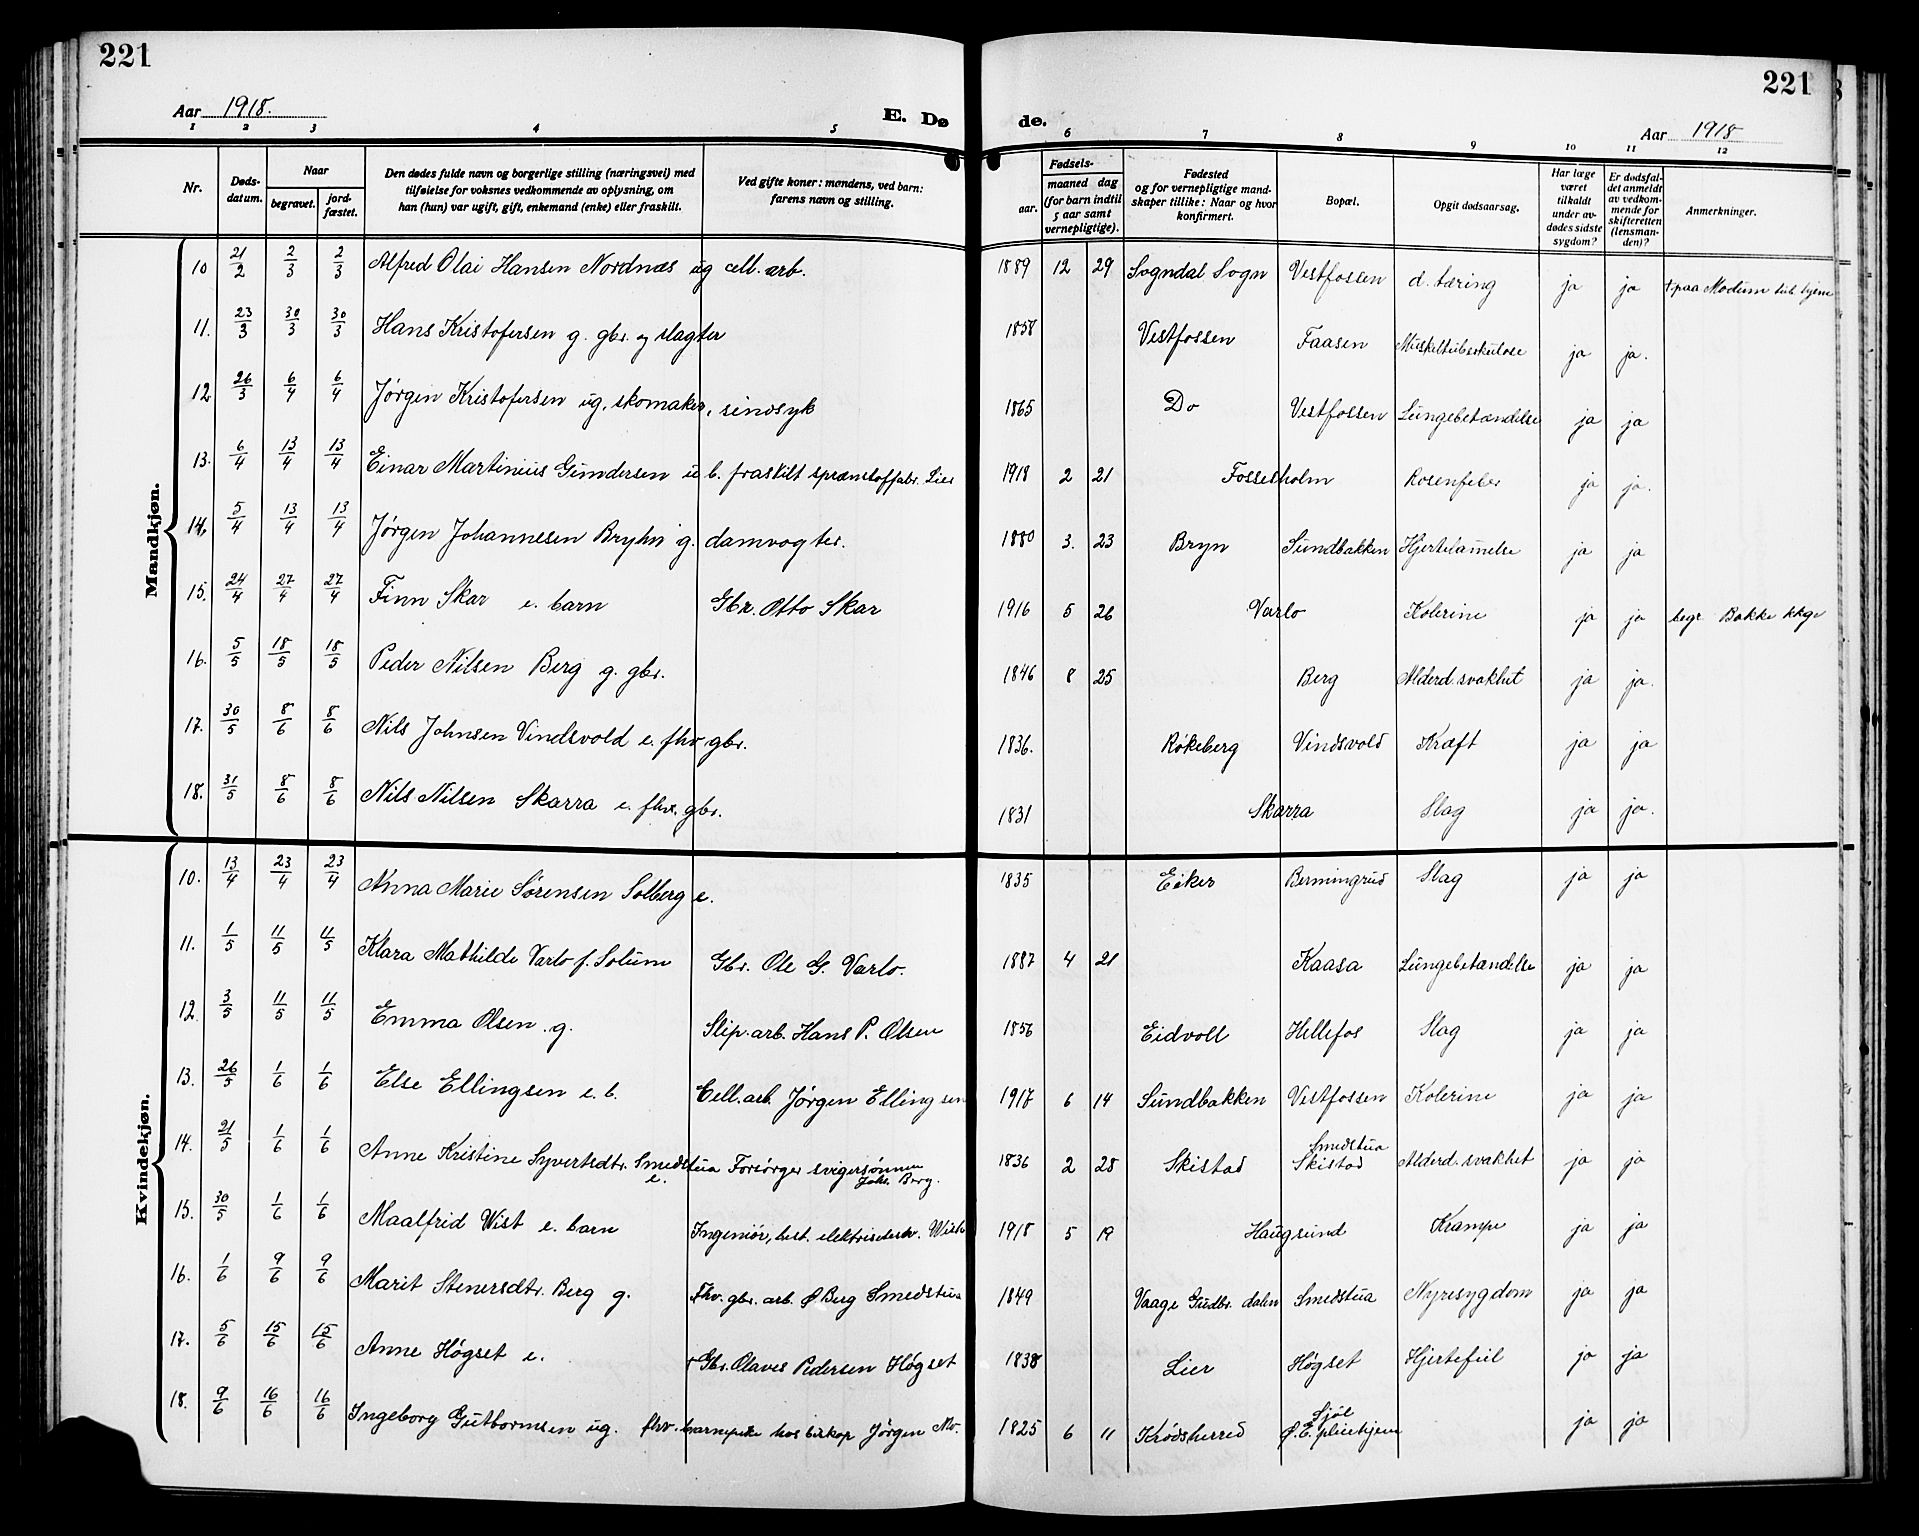 221
221
Aar 1918.
E. Dø
de.
Aar 1918
1 2 3 4 5 6 7 8 9 10 11 12
Nr.
Døds-
datum.
Naar
begravet.
jord-
fæstet.
Den dødes fulde navn og borgerlige stilling (næringsvei) med
tilføielse for voksnes vedkommende av oplysning, om
han (hun) var ugift, gift, enkemand (enke) eller fraskilt.
Ved gifte koner: mandens, ved barn:
farens navn og stilling.
Fødsels-
aar.
maaned dag
(for barn indtil
5 aar samt
vernepligtige).
Fødested
og for vernepligtige mand-
skaper tillike: Naar og hvor
konfirmert.
Bopæl.
Opgit dødsaarsag.
Har læge
været
tilkaldt
under av-
dødes sidste
sygdom?
Er dødsfal-
det anmeldt
av vedkom-
mende for
skifteretten
(lensman-
den)?
Anmerkninger.
Mandkjøn.
10 21/2 2/3 2/3 Alfred Olai Hansen Nordnæs ug cell. arb. 1889 12 29 Sogndal Sogn Vestfossen d. tæring ja ja + paa Modum tub. hjem
11. 23/3 30/3 30/3 Hans Kristofersen g. gbr. og slagter 1858 Vestfossen Faasen Muskeltuberkulose ja ja.
12 26/3 6/4 6/4 Jørgen Kristofersen ug. skomaker, sindsyk 1865 Do Vestfossen Lungebetændelse ja ja
13. 6/4 13/4 13/4 Einar Martinius Gundersen u b. fraskilt sprænstoffabr. Lier 1918 2 21 Fossesholm Rosenfeber ja ja.
14. 5/4 13/4 13/4 Jørgen Johannesen Bryhn g. damvogter. 1880 3. 23 Bryn Sundbakken Hjertelammelse ja ja
15. 24/4 27/4 27/4 Finn Skar e. barn Gbr. Otto Skar 1916 5 26 Varlo Kolerine ja ja begr Bakke kkge
16. 5/5 18/5 18/5 Peder Nilsen Berg g. gbr. 1846 8 25 Berg Alderd. svakhet ja ja.
17. 30/5 8/6 8/6 Nils Johnsen Vindsvold e. fhv. gbr. 1836. Røkeberg Vindsvold Kræft ja ja
18. 31/5 8/6 8/6 Nils Nilsen Skarra e. fhv. gbr. 1831 Skarra Slag ja ja.
Kvindekjøn.
10. 13/4 23/4 23/4 Anna Marie Sørensen Solberg e. 1835 Eiker Bermingrud Slag ja ja
11. 1/5 11/5 11/5 Klara Mathilde Varlo f. Solum Gbr. Ole G. Varlo. 1887 4 21 Kaasa Lungebetændelse ja ja
12 3/5 11/5 11/5 Emma Olsen g. Slip. arb. Hans P. Olsen 1856 Eidvoll Hellefos Slag ja ja
13. 26/5 1/6 1/6 Else Ellingsen e. b. Cell. arb. Jørgen Ellingsen 1917 6 14 Sundbakken Vestfossen Kolerine ja ja
14. 21/5 1/6 1/6 Anne Kristine Syvertsdtr. Smedstua e. Forsørger svigersønnen Johs. Berg. 1836 2 28 Skistad Smedstua Skistad Alderd. svakhet ja ja
15. 30/5 1/6 1/6 Maalfrid Wist e. barn Ingeniør, best. elektricitetsv. Wist 1918 5 19 Haugsund Krampe ja ja
16. 1/6 9/6 9/6 Marit Stenersdtr. Berg g. Fhv. gbr. arb. Ø Berg Smedstua 1849 Vaage Gudbr. dalen Smedstua Nyresygdom ja ja
17. 5/6 15/6 15/6 Anne Høgset e. + Gbr. Olaves Pedersen Høgset 1838 Lier Høgset Hjertefeil ja ja
18. 9/6 16/6 16/6 Ingeborg Gutbormsen ug. fhv. barnepike hos biskop Jørgen Mo. 1825 6 11 Krødsherred Sjøl Ø. E. pleiehjem ja ja